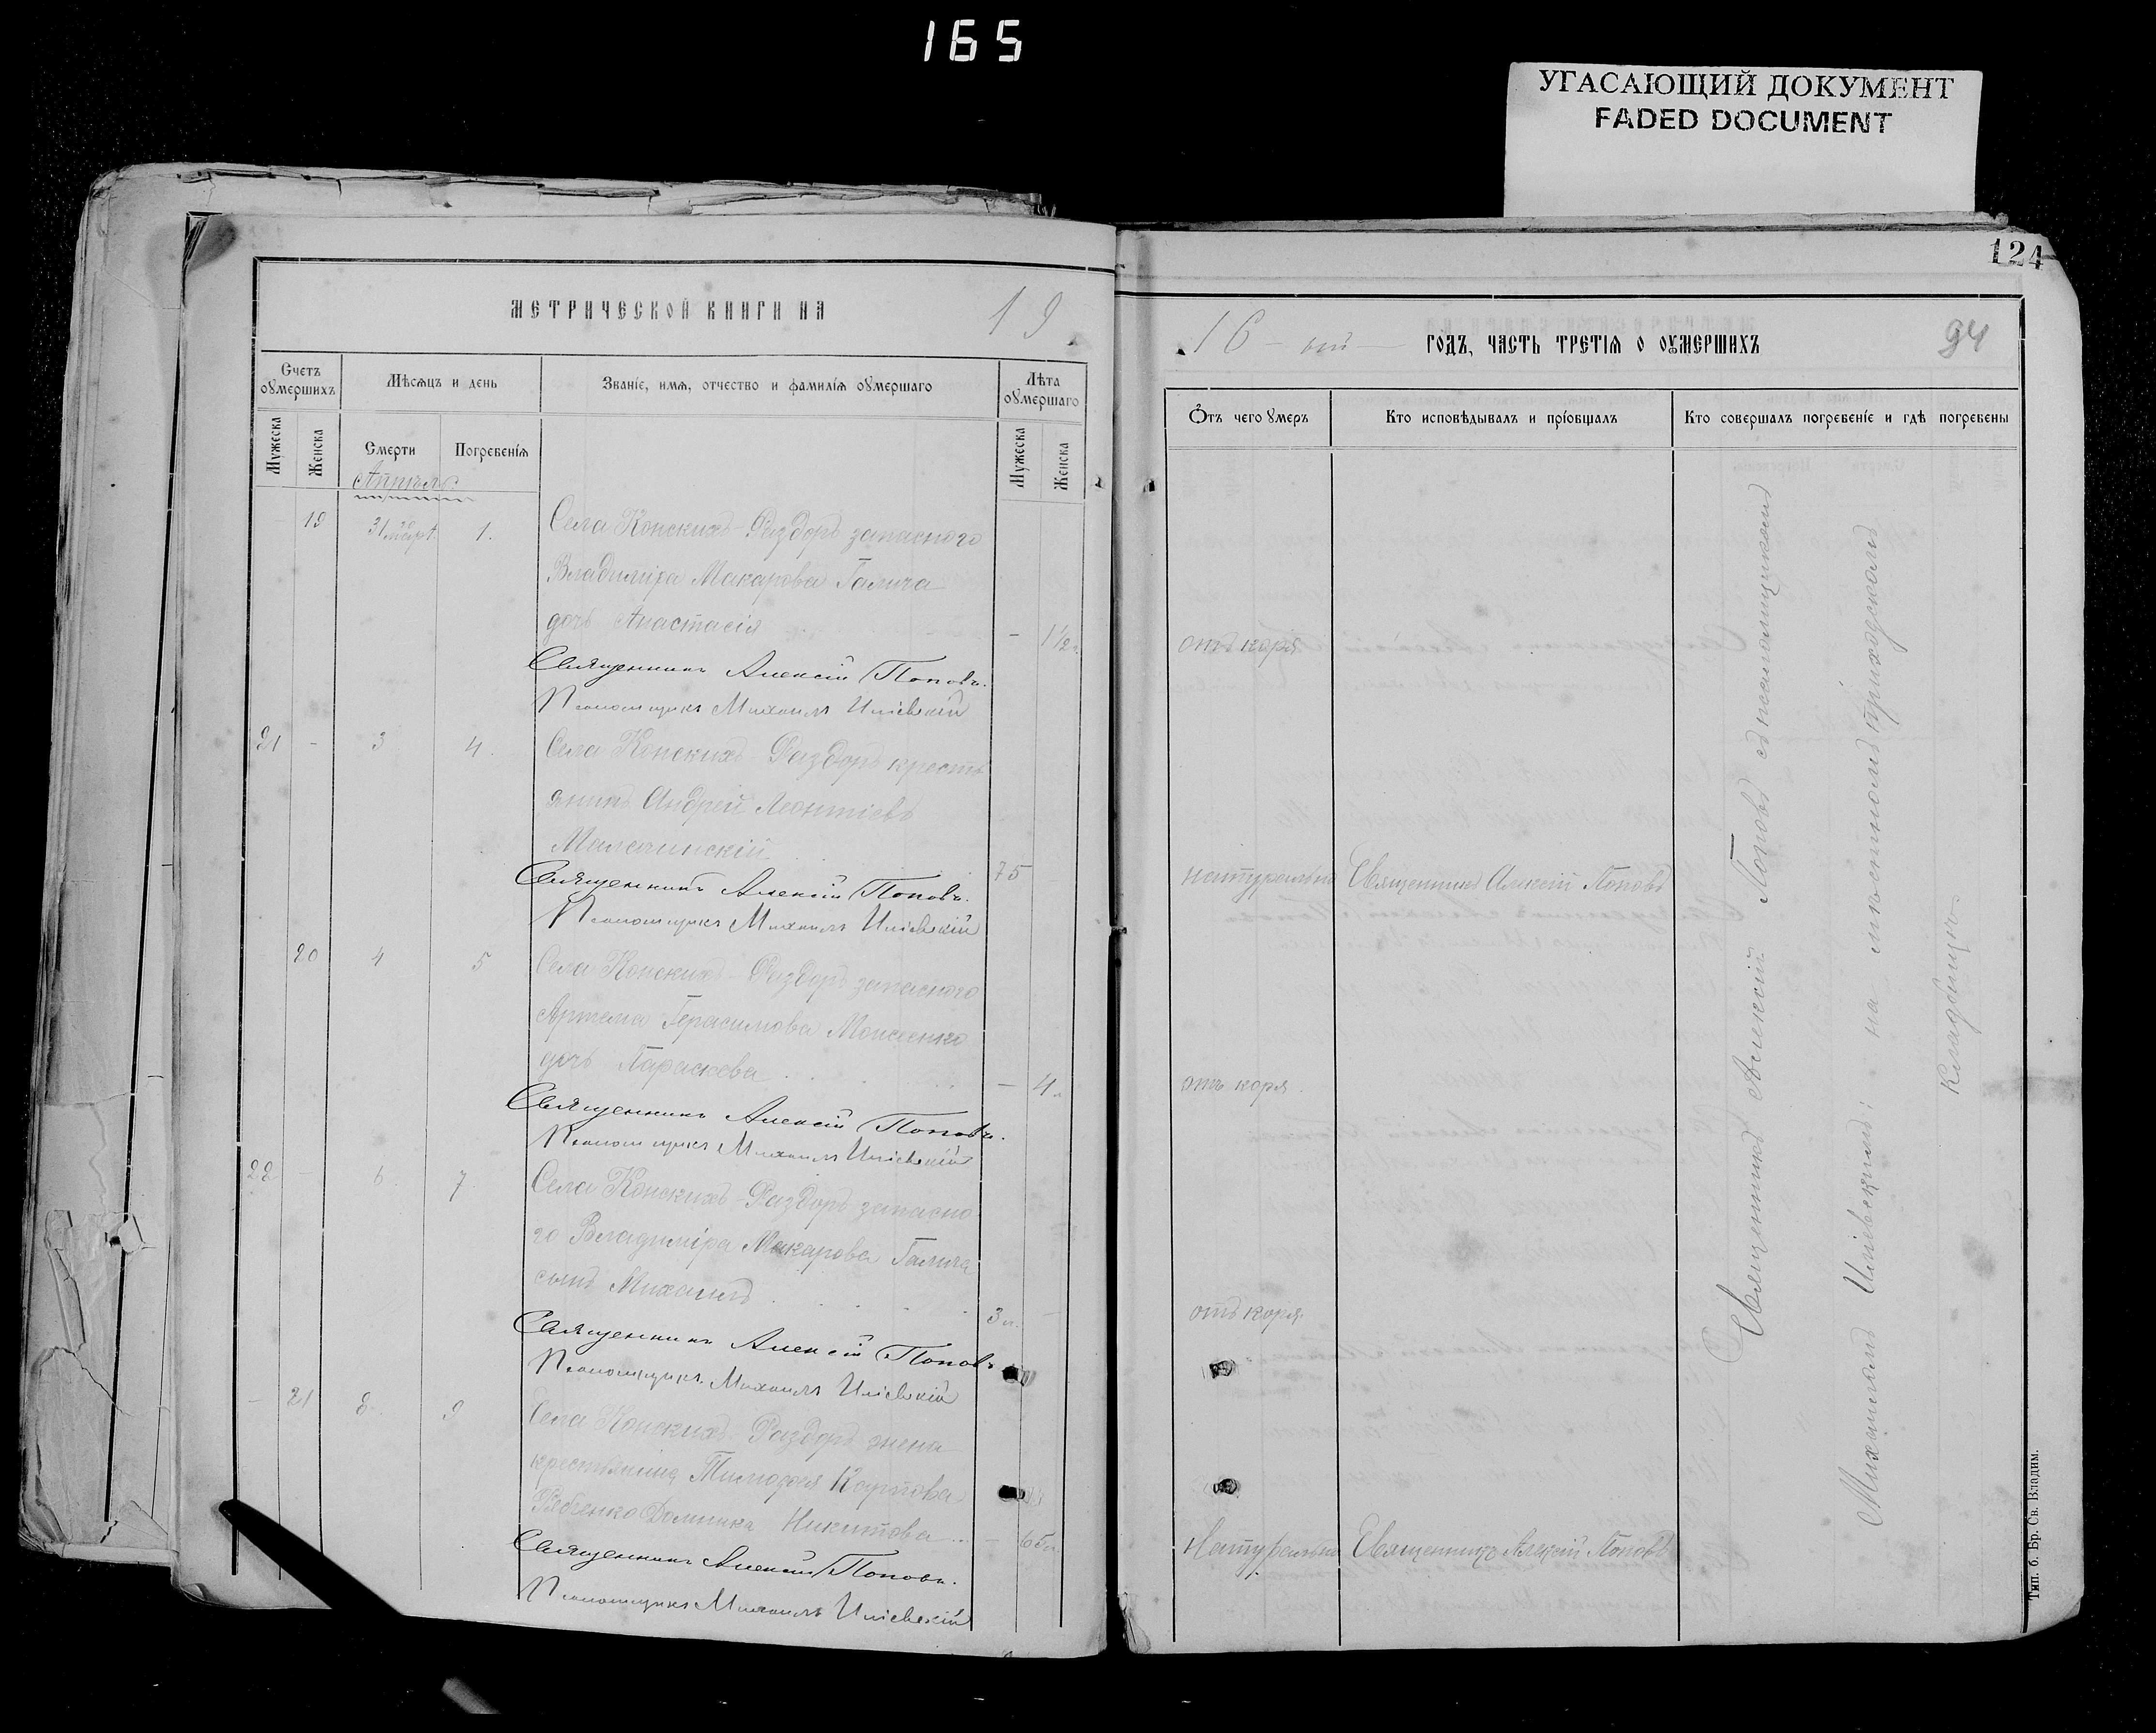 165
УГАСАЮЩИЙ ДОКУМЕНТ
FADED DOCUMENT
124
МЕТРИЧЕСКОЙ КНИГИ НА 19
16 - ый ГОДЪ, ЧАСТЬ ТРЕТІЯ О ОУМЕРШИХЪ
94
Счетъ оумершихъ
Мѣсяцъ и день
Званіе, имя, отчество и фамилія оумершаго
Лѣта оумершаго
Мужеска
Женска
Смерти
Погребенія
Мужеска
Женска
Отъ чего умеръ
Кто исповѣдывалъ и пріобщалъ
Кто совершалъ погребеніе и гдѣ погребены
Апрѣль
19 31 март. 1. Села Конскихъ-Раздоръ запасного
Владиміра Макарова Галича
дочь Анастасія - 1½ отъ кори
Священникъ Алексій Поповъ.
Псаломщикъ Михаилъ Иліевскій
21 - 3 4. Села Конскихъ-Раздоръ кресть
янинъ Андрей Леонтіевъ
75 натурально Священникъ Алексій Поповъ
Священникъ Алексій Поповъ.
Псаломщикъ Михаилъ Иліевскій
20 4 5 Села Конскихъ-Раздоръ запасного
Артема Герасимова Моисеенко
дочь Параскева - 4 л отъ кори.
Священникъ Алексій Поповъ.
Псаломщикъ Михаилъ Иліевскій
22 - 6 7. Села Конскихъ-Раздоръ запасно
го Владиміра Макарова Галича
сынъ Михаилъ 3 л. - отъ кори.
Священникъ Алексій Поповъ
Псаломщикъ Михаилъ Иліевскій
- 21 8 9 Села Конскихъ-Раздоръ жена
крестьянина Тимофея Карпова
Домника Никитова - 65 л. Натурально Священникъ Алексій Поповъ
Священникъ Алексій Поповъ.
Псаломщикъ Михаилъ Иліевскій
Священникъ Алексій Поповъ съ псаломщикомъ
Михаиломъ Иліевскимъ на мѣстномъ приходскомъ
кладбищѣ
Тип. б. Бр. Св. Владим.